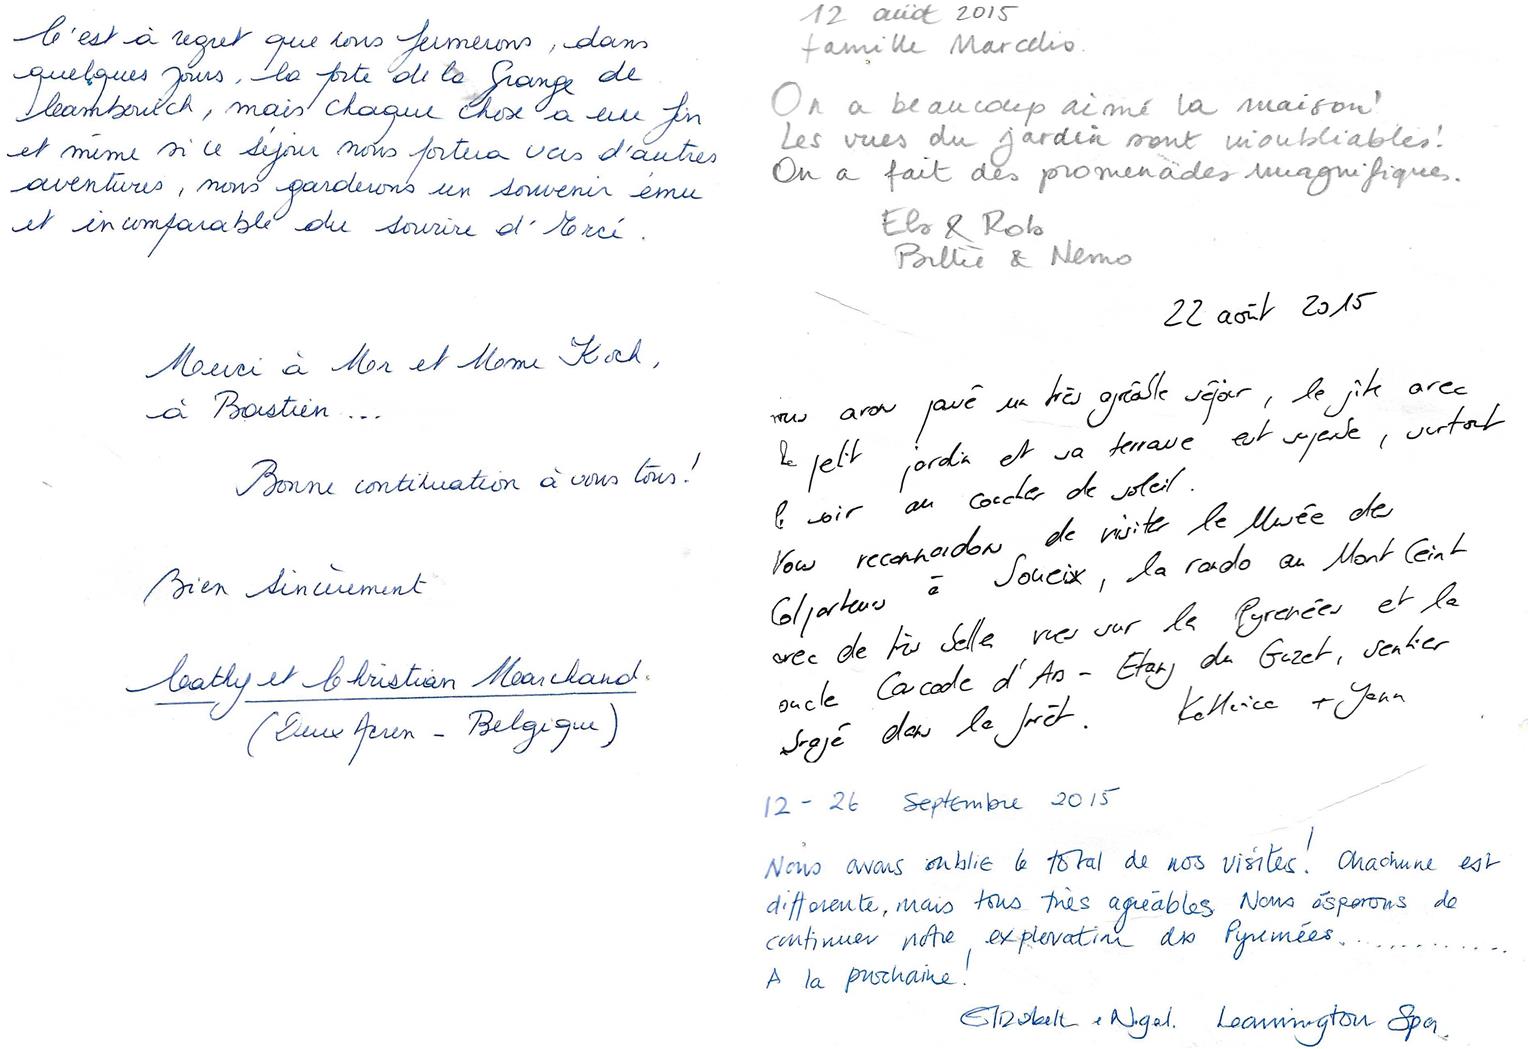 C'est à regret que nous fermerons, dans
quelques jours, la porte de la Grange de
Cambouich, mais chaque chose a une fin
et même si ce séjour nous portera vers d'autres
aventures, nous garderons un souvenir ému
et incomparable du sourire d'Ercé.
Merci à Mr et Mme Koch,
à Bastien ...
Bonne continuation à vous tous!
Bien sincèrement
Cathy et Christian Marchand.
(Deux Acren - Belgique)
12 août 2015
famille Marcelis.
On a beaucoup aimé la maison!
Les vues du jardin sont inoubliables!
On a fait des promenades magnifiques.
Els & Rob
Billie & Nemo
22 août 2015
nous avons passé un très agréable séjour, le gîte avec
le petit jardin et sa terrasse est superbe, surtout
le soir au coucher de soleil.
Vous recommandons de visiter le Musée des
Colporteurs à Soueix, la rando au Mont Ceint
avec de très belles vues sur les Pyrenées et la
oucle Cascade d'Ars - Etang du Guzet, sentier
bragé dans la forêt. + Yann
12 - 26 Septembre 2015
Nous avons oublie le total de nos visites! Chachune est
differente, mais tous très agréables. Nous ésperons de
continuer notre exploration des Pyrenées..............
A la prochaine!
Elizabeth + Nigel. Leamington Spa.